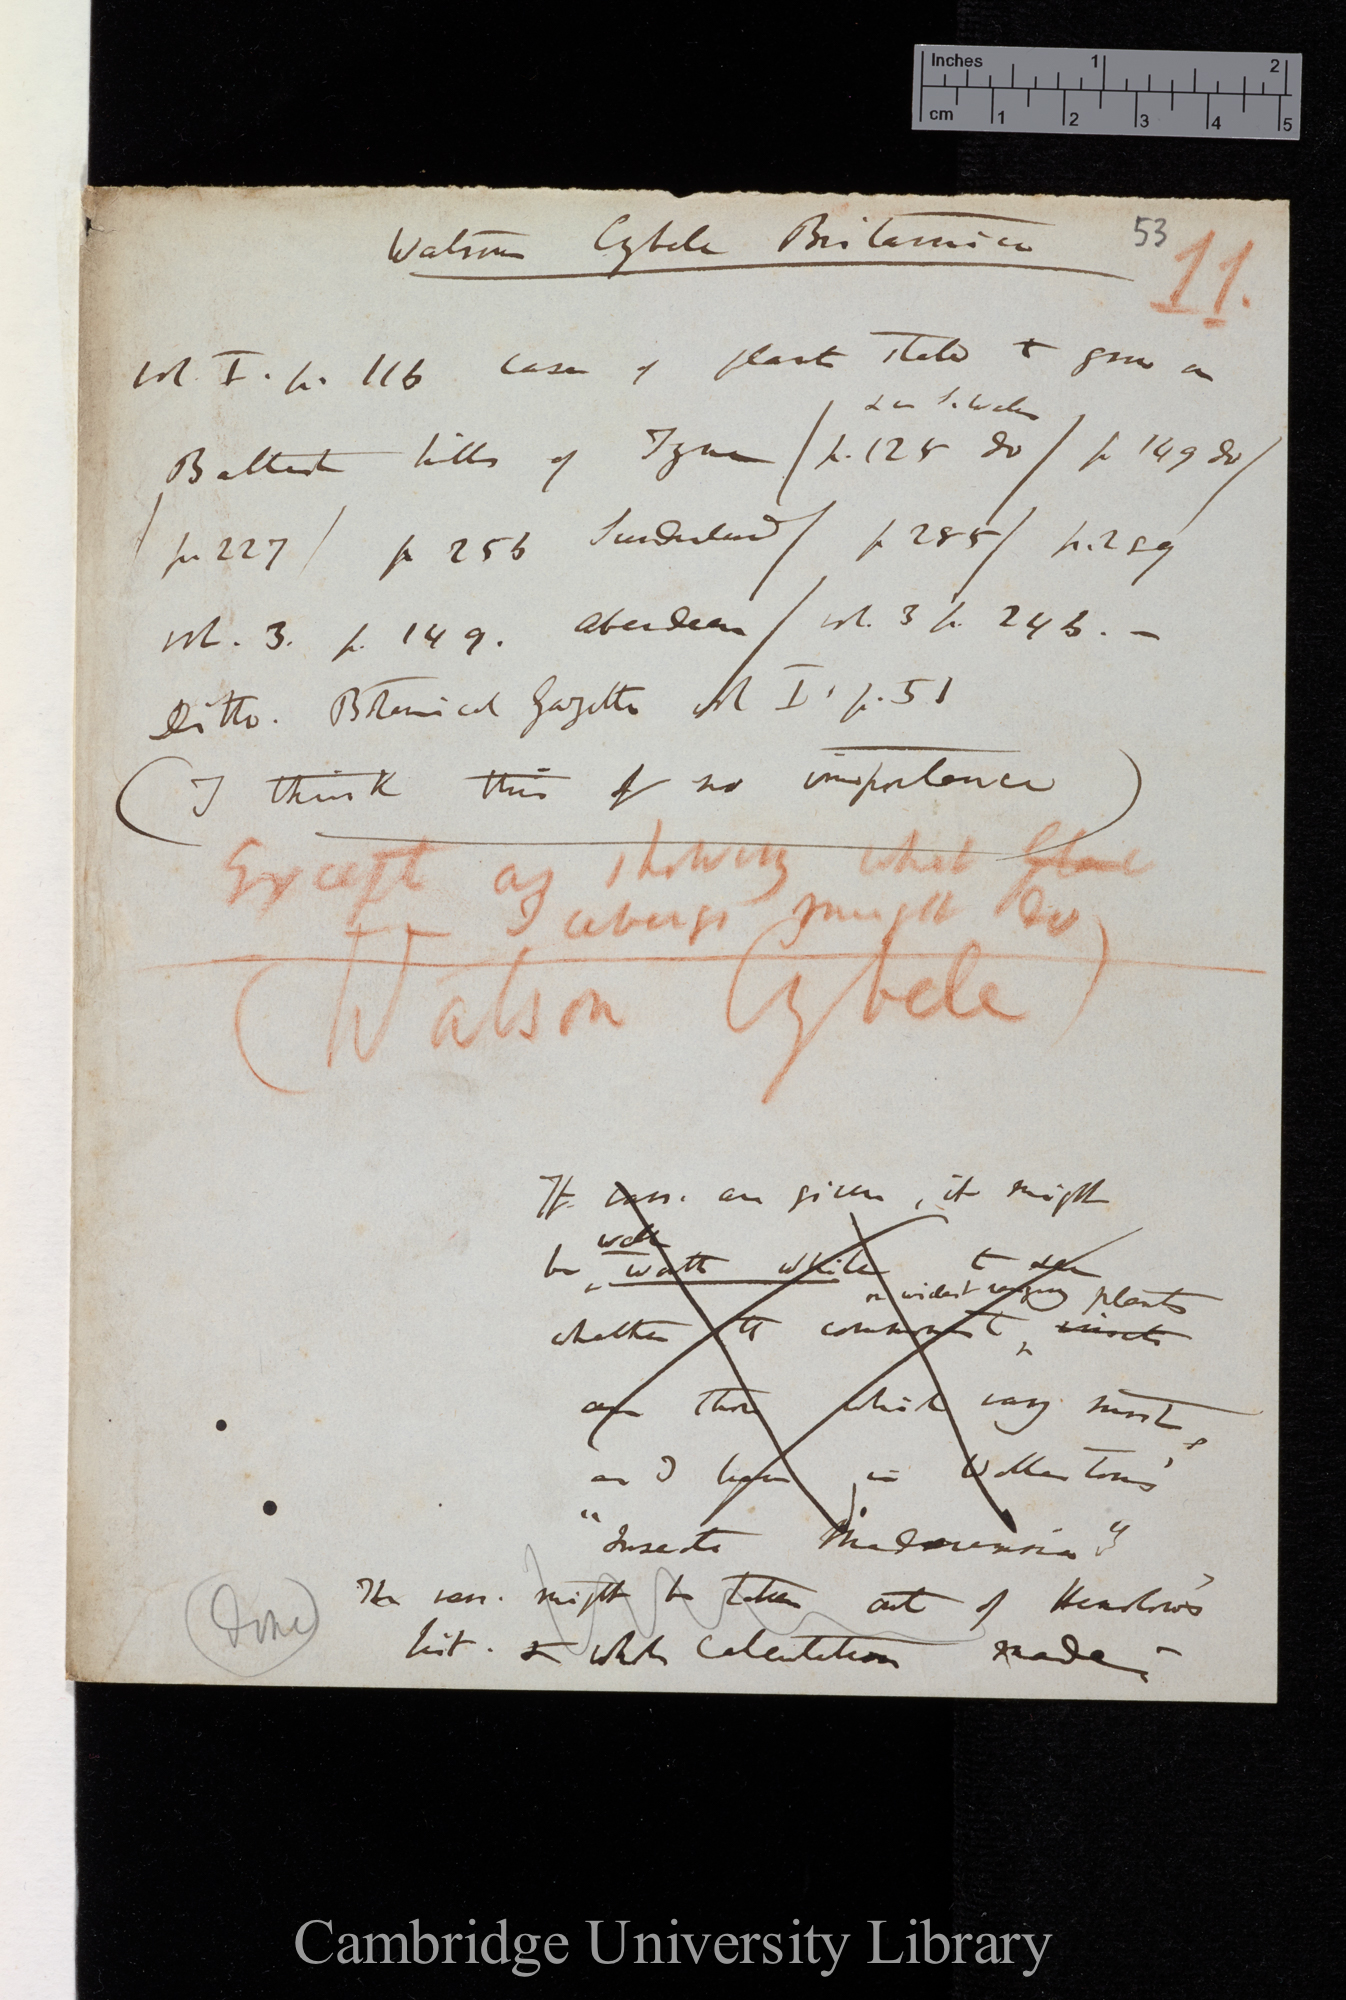 Inches 1 2
cm 1 2 3 4 5
53
11.
Watson Cybele Britannica
vol. I. p. 116 case of plant stated to grow on
& in S. Wales
Ballast hills of Tyne / p. 128 do / p 149 do /
/ p. 227 / p 256 Sunderland / p 285 / p. 289
vol. 3. p. 149. Aberdeen / vol. 3 p. 246. —
Ditto. Botanical Gazette vol I. p. 51
(I think this of no importance)
Except as showing what
Icebergs might do
(Watson Cybele)
If vars. are given, it might
well
be worth while to see
or widest ranging plants
whether the commonest, insects
are those which vary most,
as I hear in Wollaston's
"Insecta Maderensia"
The vars. might be taken out of Henslow's
list. & whole calculation made.
(Done)
Cambridge University Library